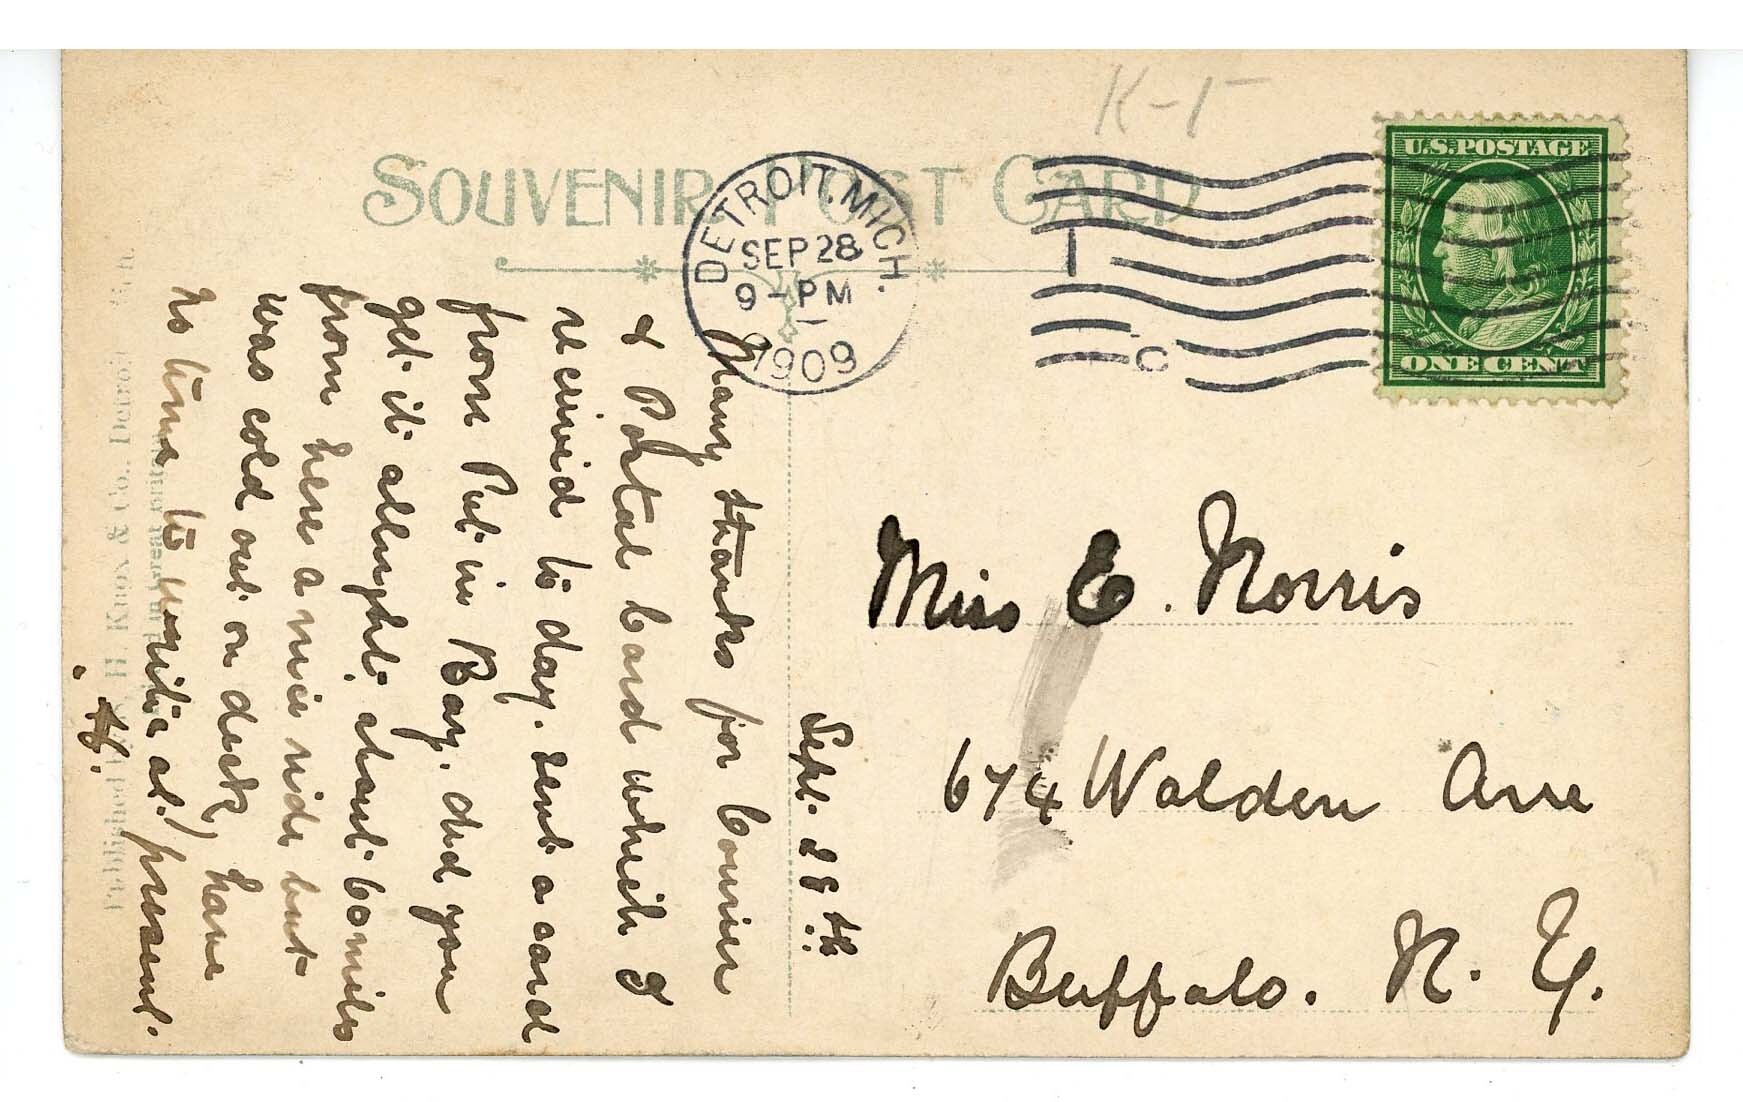 K-5
SOUVENIR POST CARD
DETROIT, MICH.
SEP 28
9-PM
1909
U.S. POSTAGE
ONE CENT
Sept. 28th
Many thanks for Courier
& Postal Card which I
received to day. sent a card
from Put in Bay. did you
get it allright. about 60 miles
from here a nice ride but
was cold out on deck, have
no time to write at present.
Miss E. Norris
674 Walden Ave
Buffalo. N. Y.
H. Knox & Co., Detroit